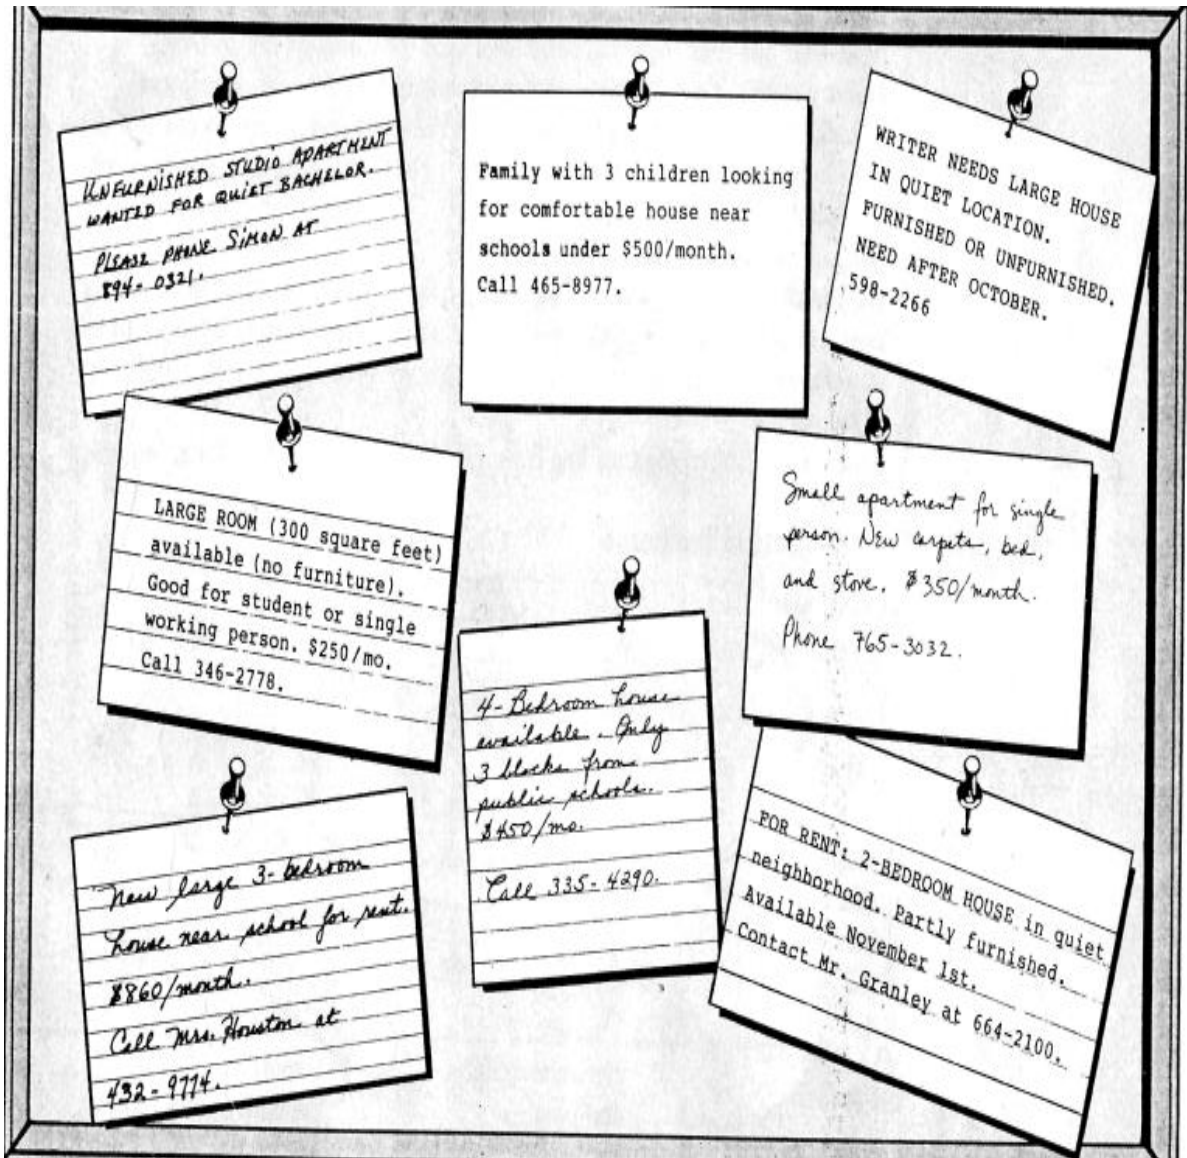 UNFURNISHED STUDIO APARTMENT
WANTED FOR QUIET BACHELOR.
PLEASE PHONE SIMON AT
894-0321.
Family with 3 children looking
for comfortable house near
schools under $500/month.
Call 465-8977.
WRITER NEEDS LARGE HOUSE
IN QUIET LOCATION.
FURNISHED OR UNFURNISHED.
NEED AFTER OCTOBER.
598-2266
LARGE ROOM (300 square feet)
available (no furniture).
Good for student or single
working person. $250/mo.
Call 346-2778.
Small apartment for single
person. New carpets, bed,
and stove. $350/month.
Phone 765-3032.
4-Bedroom house
available. Only
3 blocks from
public schools.
$450/mo.
Call 335-4290.
New large 3-bedroom
house near school for rent.
$860/month.
Call Mrs. Houston at
432-9774.
FOR RENT: 2-BEDROOM HOUSE in quiet
neighborhood. Partly furnished.
Available November 1st.
Contact Mr. Granley at 664-2100.